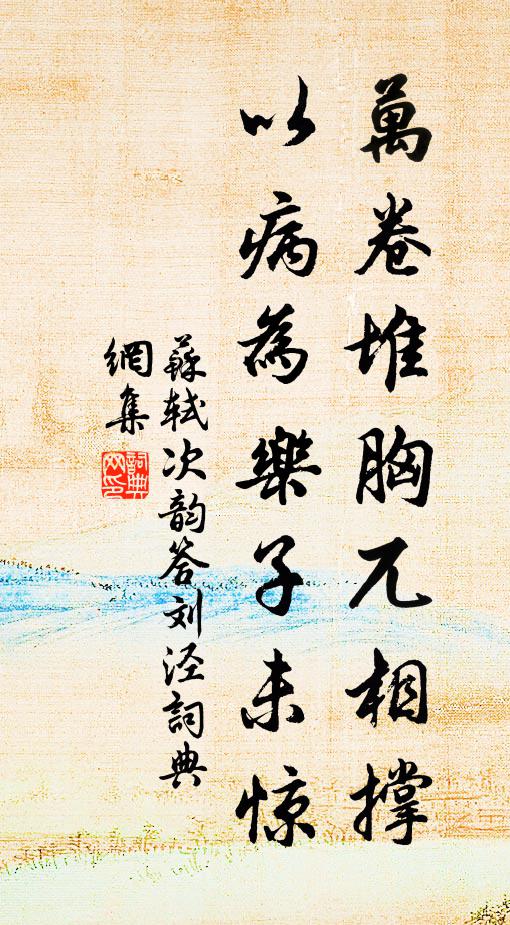 萬卷堆胸兀相撐
以病為樂子未惊
蘇軾次韵答刘泾詞典
網集
詞典
网印